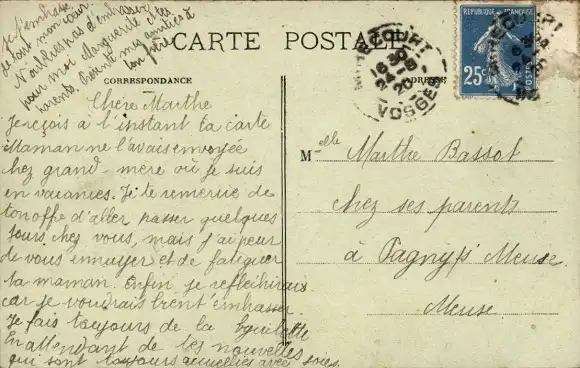 Je t'embrasse
de tout mon cœur.
N'oublies pas d'embrasser
pour moi Marguerite et tes
parents. Garde mes amitiés à
ton frère
CARTE POSTALE
CORRESPONDANCE
ADRESSE
MIRECOURT
16 30
24 -8
20
VOSGES
REPUBLIQUE FRANÇAISE
25c
POSTES
Chère Marthe
Je reçois à l'instant ta carte
Maman me l'avais envoyée
chez grand-mère où je suis
en vacances. Je te remercie de
ton offre d'aller passer quelques
jours chez vous, mais j'ai peur
de vous ennuyer et de fatiguer
ta maman. Enfin je réfléchirais
car je voudrais bien t'embrasser
Je fais toujours de la
En attendant de tes nouvelles
qui sont toujours accueillies avec joies.
Melle Marthe Bassot
chez ses parents
à Pagny s/ Meuse
Meuse.